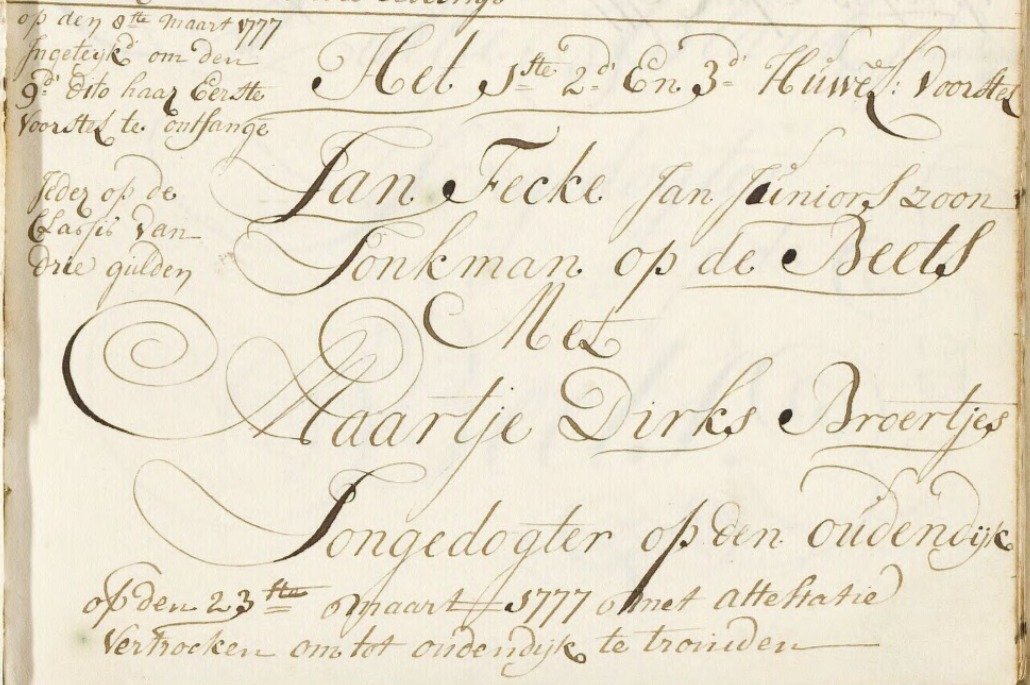 op den 8ste Maart 1777
Ingeteijkd om den
9d dito haar Eerste
Voorstel te ontfange
Ieder op de
Classis van
drie gulden
Het 1ste 2d En 3d Huwel: Voorstel
Jan Fecke Jan Juniors zoon
Jonkman op de Beets
Met
Maartje Dirks Broertjes
Jongedogter op den oudendijk
op den 23ste maart 1777 met attestatie
Vertrocken om tot oudendijk te trouwden